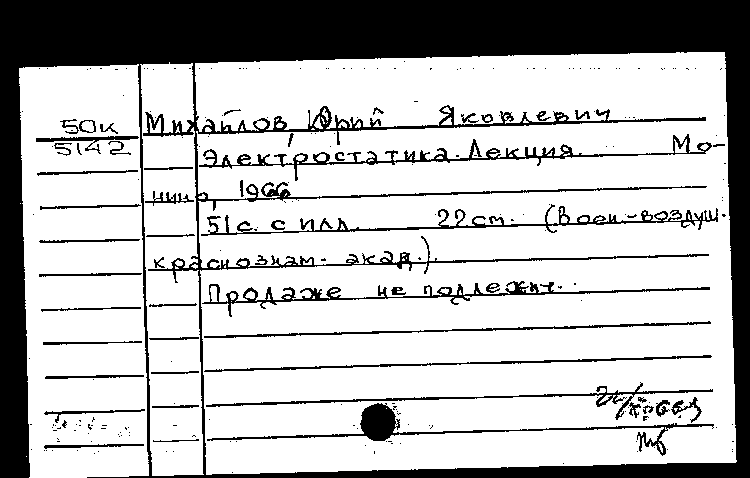 50к Михайлов, Юрий Яковлевич
5142 Электростатика. Лекция. Мо-
нино, 1966
51 с. с илл. 22 см. (Воен.-воздуш.
краснознам. акад.).
Продаже не подлежит.